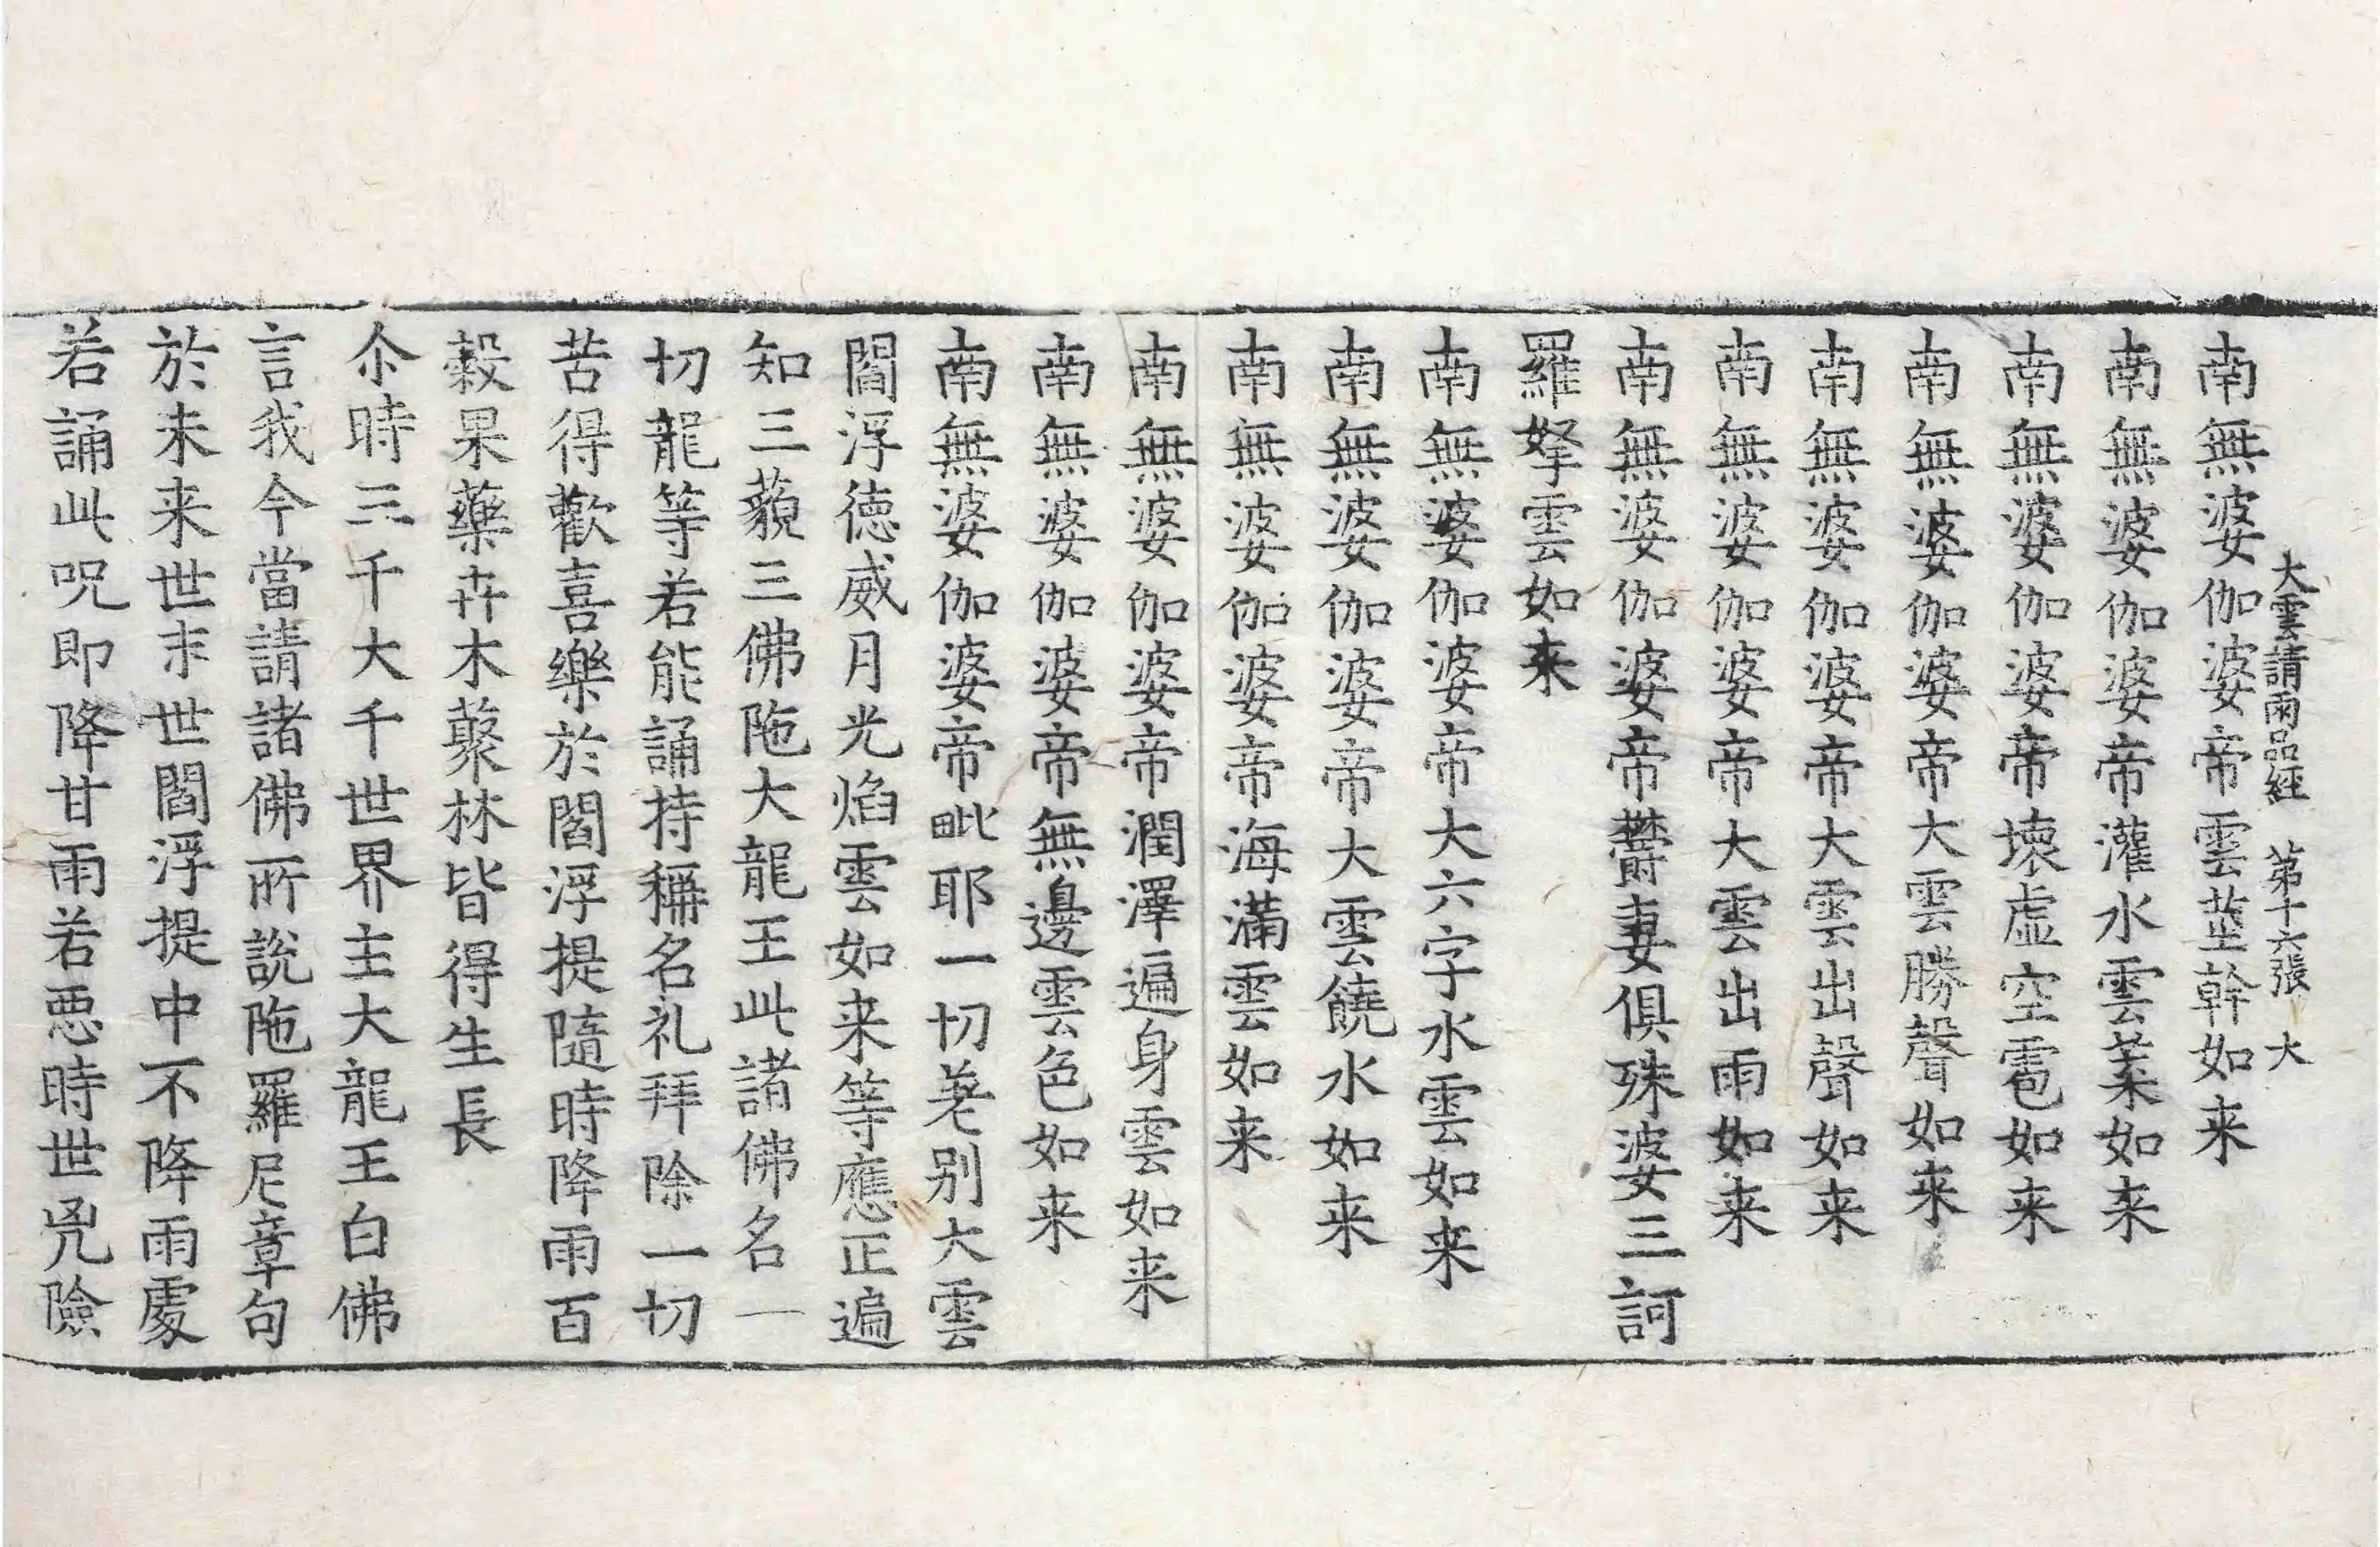 大雲請雨品經　第十六張　大
南無婆伽婆帝雲莖幹如来
南無婆伽婆帝灌水雲葉如来
南無婆伽婆帝壞虛空雹如来
南無婆伽婆帝大雲勝聲如来
南無婆伽婆帝大雲出聲如来
南無婆伽婆帝大雲出雨如来
南無婆伽婆帝欝妻俱殊婆三訶
羅拏雲如来
南無婆伽婆帝大六字水雲如来
南無婆伽婆帝大雲饒水如来
南無婆伽婆帝海滿雲如来
南無婆伽婆帝潤澤遍身雲如来
南無婆伽婆帝無邊雲色如来
南無婆伽婆帝毗耶一切差别大雲
閻浮德威月光焰雲如来等應正遍
知三藐三佛陁大龍王此諸佛名一
切龍等若能誦持稱名礼拜除一切
苦得歡喜樂於閻浮提隨時降雨百
穀果藥卉木藂林皆得生長
尒時三千大千世界主大龍王白佛
言我今當請諸佛所說陁羅尼章句
於未来世末世閻浮提中不降雨處
若誦此呪即降甘雨若惡時世㐫險